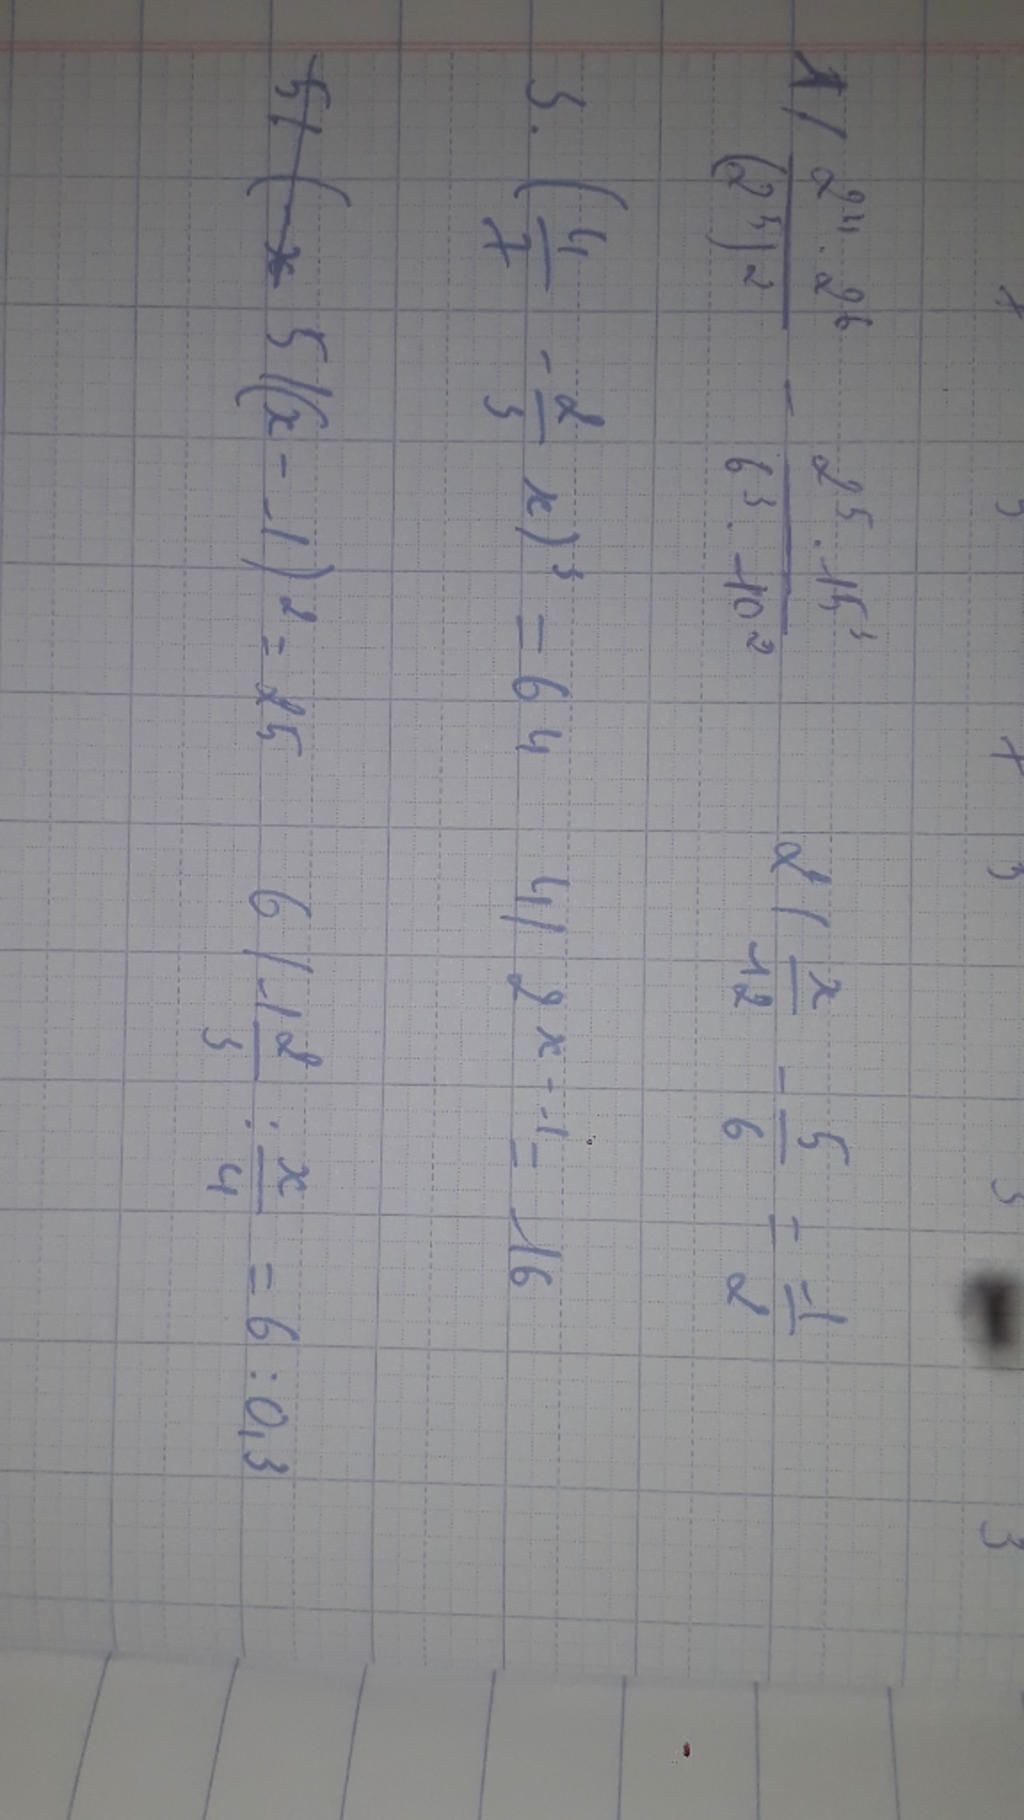 1/ \frac{2^4 \cdot 2^6}{(2^5)^2} - \frac{2^5 \cdot 15^3}{6^3 \cdot 10^2} 2/ \frac{x}{12} - \frac{5}{6} = \frac{-1}{2}
3. (\frac{4}{7} - \frac{2}{3} x)^3 = 64 4/ 2^{x-1} = 16
5/ (x - 1)^2 = 25 6/ 1\frac{2}{3} : \frac{x}{4} = 6 : 0,3